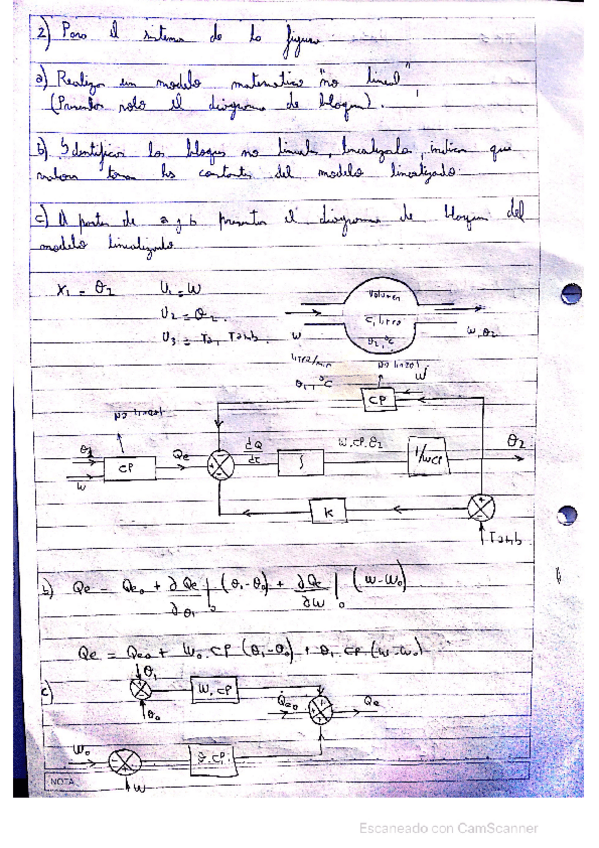 2) Para el sistema de la figura
a) Realizar un modelo matematico "no lineal"
(Presentar solo el diagrama de bloques).
b) Identificar los bloques no lineales, linealizarlo, indicar que
valores toman las constantes del modelo linealizado
c) A partir de a y b presentar el diagrama de bloques del
modelo linealizado
X₁ = θ₂ U₁ = W
U₂ = θ₂.
U₃ = Ta, Tamb.
Volumen
C, litro
θ₂, °C
W
liter/min
θ₁, °C
W, θ₂
No lineal
W
CP
No lineal
θ₁
W
CP
Qe
dQ
dt
∫
W.CP.θ₂
1/WCP
θ₂
K
Tamb
b) Qe = Qe₀ + ∂Qe/∂θ₁|₀ (θ₁-θ₀) + ∂Qe/∂W|₀ (W-W₀)
Qe = Qe₀ + W₀.CP (θ₁-θ₀) + θ₁.CP (W-W₀)
c)
θ₁
θ₀
W.CP
Qe₀
Qe
W₀
W
NOTA
Escaneado con CamScanner